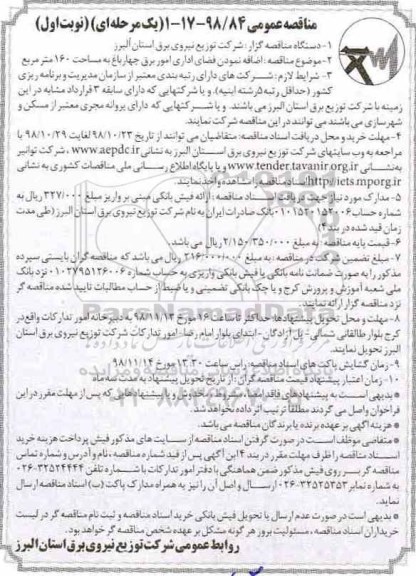 مناقصه عمومی ۹۸/۸۴-۱۷-۱(یک مرحله ای) (نوبت اول)
۱- دستگاه مناقصه گزار: شرکت توزیع نیروی برق استان آلبرز
۲- موضوع مناقصه: اضافه نمودن فضای اداری امور برق چهارباغ به مساحت ۱۶۰ متر مربع
۳- شرایط لازم: شرکت های دارای رتبه بندی معتبر از سازمان مدیریت و برنامه ریزی
کشور (حداقل رتبه ۵ رشته ابنیه). و یا شرکتهایی که دارای سابقه ۳ قرارداد مشابه در این
زمینه با شرکت توزیع برق استان البرز می باشند و یا شرکتهایی که دارای پروانه مجری معتبر از مسکن و
شهرسازی می باشند می توانند در این مناقصه شرکت نمایند.
۴- مهلت خرید و محل دریافت اسناد مناقصه: متقاضیان می توانند از تاریخ ۹۸/۱۰/۲۳ لغایت ۹۸/۱۰/۲۹ با
مراجعه به وب سایتهای شرکت توزیع نیروی برق استان البرز به نشانی www.aepdc.ir، شرکت توانیر
به نشانی www.tender.tavanir.org.ir و یا پایگاه اطلاع رسانی ملی مناقصات کشوری به نشانی
http//iets.mporg.ir اسناد مناقصه را مشاهده و اخذ نمایند.
۵- مدارک مورد نیاز جهت دریافت اسناد مناقصه: ارائه فیش بانکی مبنی بر واریز مبلغ ۳۲۷/۰۰۰ ریال به
شماره حساب ۰۱۰۱۵۲۰۱۵۲۰۰۶ بانک صادرات ایران به نام شرکت توزیع نیروی برق استان البرز (طی مدت
زمان قید شده در بند ۴)
۶- قیمت پایه مناقصه: به مبلغ ۲/۱۵۰/۳۵۰/۰۰۰ ریال می باشد.
۷- مبلغ تضمین شرکت در مناقصه: به مبلغ ۲۱۶/۰۰۰/۰۰۰ ریال می باشد که مناقصه گران بایستی سپرده
مذکور را به صورت ضمانت نامه بانکی یا فیش بانکی واریزی به حساب شماره ۰۱۰۲۷۹۵۱۲۶۰۰۶ نزد بانک
ملی شعبه آموزش و پرورش کرج و یا چک بانکی تضمینی و یا ضبط از حساب مطالبات تایید شده مناقصه گر
نزد مناقصه گزار ارائه نمایند.
۸- مهلت و محل تحویل پیشنهادها: حداکثر تا ساعت ۱۶ مورخ ۹۸/۱۱/۱۳ به دبیرخانه امور تدارکات واقع در
کرج بلوار طالقانی شمالی- پل آزادگان- ابتدای بلوار امام رضا- امور تدارکات شرکت توزیع نیروی برق استان
البرز تحویل نمایند.
۹- زمان گشایش پاکت های اسناد مناقصه: راس ساعت ۱۳:۳۰ مورخ ۹۸/۱۱/۱۴
۱۰- زمان اعتبار پیشنهاد قیمت مناقصه گران: از تاریخ تحویل پیشنهاد به مدت سه ماه
* بدیهی است به پیشنهادهای فاقد امضاء، مشروط، مخدوش و پیشنهادهایی که پس از مهلت مقرر در این
فراخوان واصل می گردند مطلقا ترتیب اثر داده نخواهد شد.
* هزینه آگهی بر عهده برنده یا برندگان مناقصه می باشد.
* متقاضی موظف است در صورت گرفتن اسناد مناقصه از سایت های مذکور فیش پرداخت هزینه خرید
اسناد مناقصه را ظرف مهلت مقرر در بند ۴ این آگهی پس از قید شماره مناقصه، نام و آدرس و شماره تماس
مناقصه گر بر روی فیش مذکور ضمن هماهنگی با دفتر امور تدارکات با شماره تلفن ۳۲۵۲۴۴۴۴-۰۲۶
به شماره نمابر ۳۲۵۲۵۳۵۳-۰۲۶ ارسال و اصل آن را نیز به همراه مدارک پاکت (ب) اسناد مناقصه ارسال
نماید.
* بدیهی است در صورت عدم ارسال یا تحویل فیش بانکی خرید اسناد مناقصه و ثبت نام مناقصه گر در لیست
خریداران اسناد مناقصه، مسئولیت بروز هر گونه مشکل بر عهده شخص مناقصه گر خواهد بود.
روابط عمومی شرکت توزیع نیروی برق استان البرز